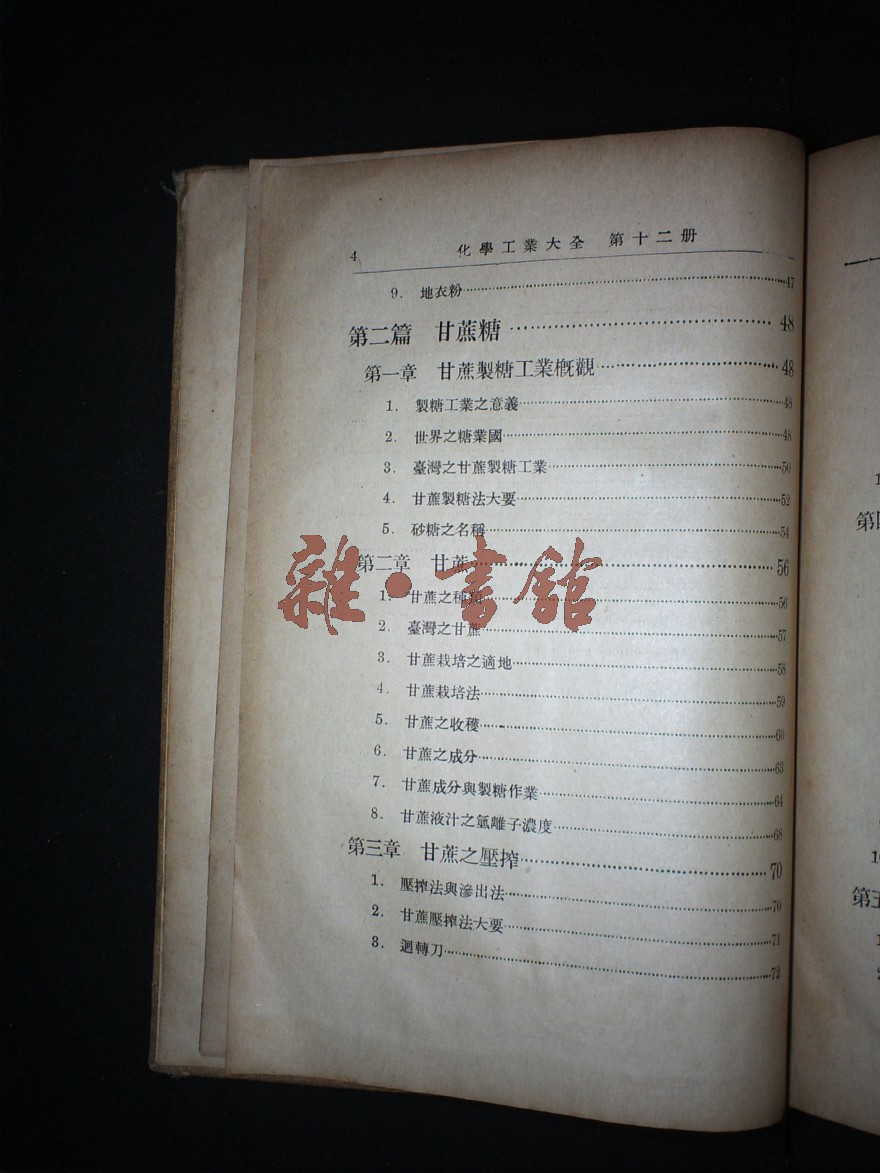 4 化學工業大全 第十二册
9. 地衣粉 47
第二篇 甘蔗糖 48
第一章 甘蔗製糖工業概觀 48
1. 製糖工業之意義 48
2. 世界之糖業國 48
3. 臺灣之甘蔗製糖工業 50
4. 甘蔗製糖法大要 52
5. 砂糖之名稱 54
第二章 甘蔗 56
1. 甘蔗之種類 56
2. 臺灣之甘蔗 57
3. 甘蔗栽培之適地 58
4. 甘蔗栽培法 59
5. 甘蔗之收穫 60
6. 甘蔗之成分 63
7. 甘蔗成分與製糖作業 64
8. 甘蔗液汁之氫離子濃度 68
第三章 甘蔗之壓搾 70
1. 壓搾法與滲出法 70
2. 甘蔗壓搾法大要 71
3. 迴轉刀 72
雜·書館